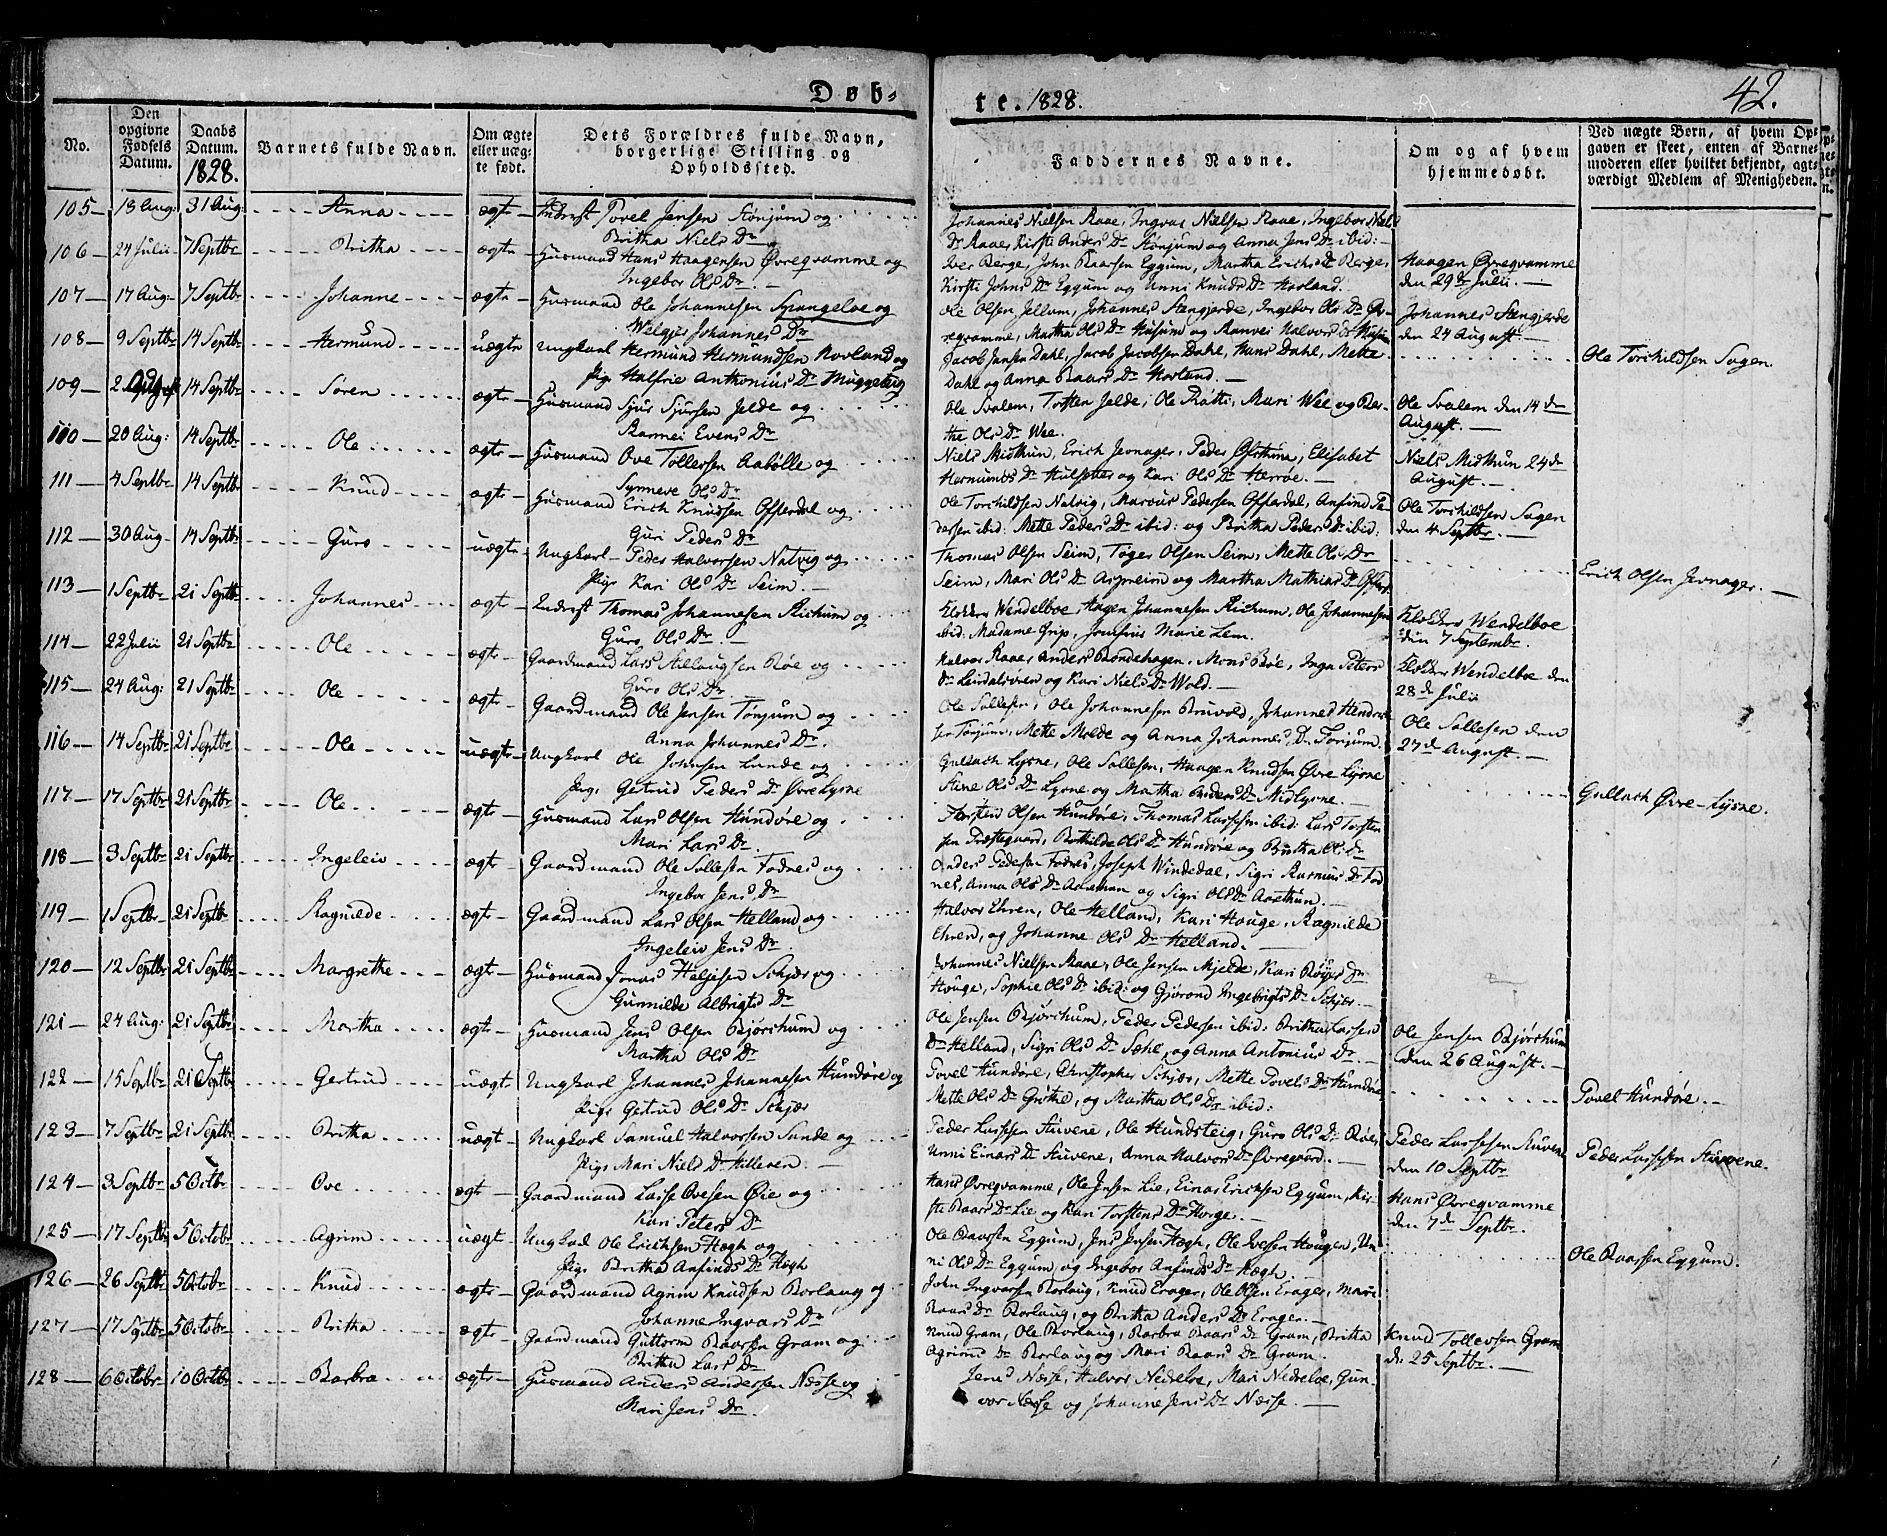 Døb-
te. 1828.
42.
No.
Den opgivne Fødsels Datum.
Daabs Datum. 1828.
Barnets fulde Navn.
Om ægte eller uægte født.
Dets Forældres fulde Navn, borgerlige Stilling og Opholdssted.
Faddernes Navne.
Om og af hvem hjemmedøbt.
Ved uægte Børn, af hvem Opgaven er skeet, enten af Barnemoderen eller hvilket bekjendt, agtværdigt Medlem af Menigheden.
105 - 13 Aug: 31 Aug: Anna ægte Inderst Povel Jensen Stønjum og
Britha Niels Dr
Johannes Nielsen Raae, Ingvar Nielsen Raae, Ingebor Niels
Dr Raae, Kirsti Anders Dr Stønjum og Anna Jens Dr ibid:
106 - 24 Julii 7 Septbr Britha ægte Huusmand Hans Haagensen Øvreqvamme og
Ingebor Ols Dr
Iver Berge, John Baarsen Eggum, Martha Erichs Dr Berge,
Kirsti Johns Dr Eggum og Unni Knuds Dr Hovland.
Haagen Øvreqvamme
den 29de Julii.
107 - 17 Aug: 7 Septbr Johanne ægte Huusmand Ole Johannesen Spangeloe og
Welgjer Johannes Dr
Ole Olsen Jellum, Johannes Stengjerde, Ingebor Ols Dr Øv-
reqvamme, Martha Ols Dr Husum og Ranvei Halvors Dr Husum
Johannes Stengjerde
den 24 August.
108 - 9 Septbr 14 Septbr Hermund uægte Ungkarl Hermund Hermundsen Hovland og
Pige Halfrie Anthonius Dr Muggeteig
Jacob Jansen Dahl, Jacob Jacobsen Dahl, Hans Dahl, Mette
Dahl og Anna Baars Dr Hovland.
Ole Torchildsen Sagen.
109 - 2 August 14 Septbr Søren ægte Huusmand Sjur Sjursen Jelde og
Rannei Evens Dr
Ole Svalem, Torsten Jelde, Ole Røtti, Mari Wee og Ber-
the Ols Dr Wee.
Ole Svalem den 14 de
August.
110 - 20 Aug: 14 Septbr Ole ægte Huusmand Ove Tollefsen Aabølle og
Synneve Ols Dr
Niels Midthun, Erich Jevnager, Peder Ofsthun, Elisabet
Hermunds Dr Hulsetter og Kari Ols Dr Herrøe.
Niels Midthun 24 de
August.
111 - 4 Septbr 14 Septbr Knud ægte Huusmand Erich Knudsen Offerdal og
Guri Peders Dr
Ole Torchildsen Natvig, Marcus Pedersen Offerdal, Anfind Pe-
dersen ibid: Mette Peders Dr ibid: og Britha Peders Dr ibid:
Ole Torchildsen Sagen
den 4 Septbr.
112 - 30 Aug 14 Septbr Guro uægte Ungkarl Peder Halvorsen Natvig og
Pige Kari Ols Dr Seim
Thomas Olsen Seim, Tøger Olsen Seim, Mette Ols Dr
Seim, Mari Ols Dr Aspreim og Martha Mathias Dr Offerd.
Erich Olsen Jevnager.
113 - 1 Septbr 21 Septbr Johannes ægte Inderst Thomas Johannesen Richum og
Guro Ols Dr
Klokker Wendelboe Hagen Johannesen Richum, Ole Johannesen
ibid: Madame Grip, Jomfrue Marie Lem.
Klokker Wendelboe
den 7 Septembr.
114 - 22 Julii 21 Septbr Ole ægte Gaardmand Lars Aslaugsen Bøe og
Guro Ols Dr
Halvor Raae, Anders Bondehagen, Mons Bøe, Inga Peters
Dr Leirdalsøren og Kari Niels Dr Wold.
Klokker Wendelboe den
28 de Julii
115 - 24 Aug: 21 Septbr Ole ægte Gaardmand Ole Jensen Tønjum og
Anna Johannes Dr.
Ole Sollesen, Ole Johannesen Bruvold, Johannes Hendrik
sen Tønjum, Mette Molde og Anna Johannes Dr Tønjum.
Ole Sollesen den
27 de August.
116 - 14 Septbr 21 Septbr Ole uægte Ungkarl Ole Johnsen Lunde og
Pige Gertrud Peders Dr Øvre Lysne
Gullach Lysne, Ole Sollesen, Haagen Knudsen Øvre Lysne
Stine Ols Dr Lysne og Martha Anders Dr Nedlysne.
Gullach Øvre-Lysne.
117 - 17 Septbr 21 Septbr Ole ægte Huusmand Lars Olsen Hundøre og
Mari Lars Dr
Torsten Olsen Hundøre, Thomas Lassesen ibid: Lars Torsten
sen Præstegaard, Bothilde Ols Dr Hundøre og Britha Ols Dr
118 - 3 Septbr 21 Septbr Ingeleiv ægt Gaardmand Ole Sollesen Fodnes og
Ingebor Jens Dr
Anders Pedersen Fodnes, Joseph Windedal, Sigri Rasmus Dr Fod
nes, Anna Ols Dr Aarethun og Sigri Ols Dr Aarethun.
119 - 1 Septbr 21 Septb Ragnilde ægt Gaardmand Lars Olsen Helland og
Ingeleiv Jens Dr.
Halvor Ehren, Ole Helland, Kari Houge, Ragnilde
Ehren, og Johanne Ols Dr Helland.
120 - 12 Septbr 21 Septbr Margrethe ægt Huusmand Jonas Helgesen Schjær og
Gunnilde Albrigts Dr
Johannes Nielsen Raae, Ole Jensen Mjelde, Kari Børges Dr
Houge, Sophie Ols Dr ibid: og Gjørond Ingebrigts Dr Schjær.
121 - 24 Aug: 21 Septbr Martha ægt Huusmand Jens Olsen Bjørchum og
Martha Ols Dr
Ole Jensen Bjørchum, Peder Pedersen ibid: Britha Lasses
Dr Helland, Sigri Ols Dr Sæhl, og Anna Antonius Dr.
Ole Jensen Bjørchum
den 26 August.
122 - 15 Septbr 21 Septbr Gertrud uægt Ungkarl Johannes Johannesen Hundøre og
Pige Gertrud Ols Dr Schjær
Povel Hundøre, Christopher Schjær, Mette Povels Dr Hundøre
Mette Ols Dr Grøthe, og Martha Ols Dr ibid:
Povel Hundøre.
123 - 7 Septbr 21 Septbr Britha uægt Ungkarl Samuel Halvorsen Sunde og
Pige Mari Niels Dr Hilleren
Peder Lassesen Stuvene, Ole Hundsteig, Guro Ols Dr Bøe,
Unni Einars Dr Stuvene, Anna Halvors Dr Øvregaard.
Peder Lassesen Stuvene
den 10 Septbr
Peder Lassesen Stuvene.
124 - 3 Septbr 5 Octbr Ove ægt Gaardmand Lasse Ovesen Øie og
Kari Peters Dr
Hans Øvreqvamme, Ole Jensen Lie, Einar Erichsen Eggum, Kir-
sti Baars Dr Lie og Kari Torstens Dr Horge.
Hans Øvreqvamme
den 7 de Septbr.
125 - 17 Septbr 5 Octob Agrim uægt Ungkarl Ole Erichsen Høgh og
Pige Britha Anfinds Dr Høgh
Ole Baarsen Eggum, Jens Jensen Høgh, Ole Ivesen Hougen, Un-
ni Ols Dr Eggum, og Ingebor Anfinds Dr Høgh.
Ole Baarsen Eggum.
126 - 26 Septbr 5 Octobr Knud ægte Gaardmand Agrim Knudsen Borlaug og
Johanne Ingvars Dr
John Ingvarsen Borlaug, Knud Erager, Ole Olsen Erager, Mari
Baars Dr Borlaug, og Britha Anders Dr Erager.
127 - 17 Septbr 5 Octobr Britha ægte Gaardmand Guttorm Baarsen Gram og
Britha Lars Dr
Knud Gram, Ole Borlaug, Barbra Baars Dr Gram, Britha
Agrims Dr Borlaug og Mari Baars Dr Gram.
Knud Tollevsen Gram
de 25 Septbr.
128 - 6 Octobr 10 Octbr Barbra ægte Huusmand Anders Andersen Næsse og
Mari Jens Dr.
Jens Næsse, Halvor Nedeløe, Mari Nedreløe, Gun-
vor Næsse og Johanne Jens Dr Næsse.